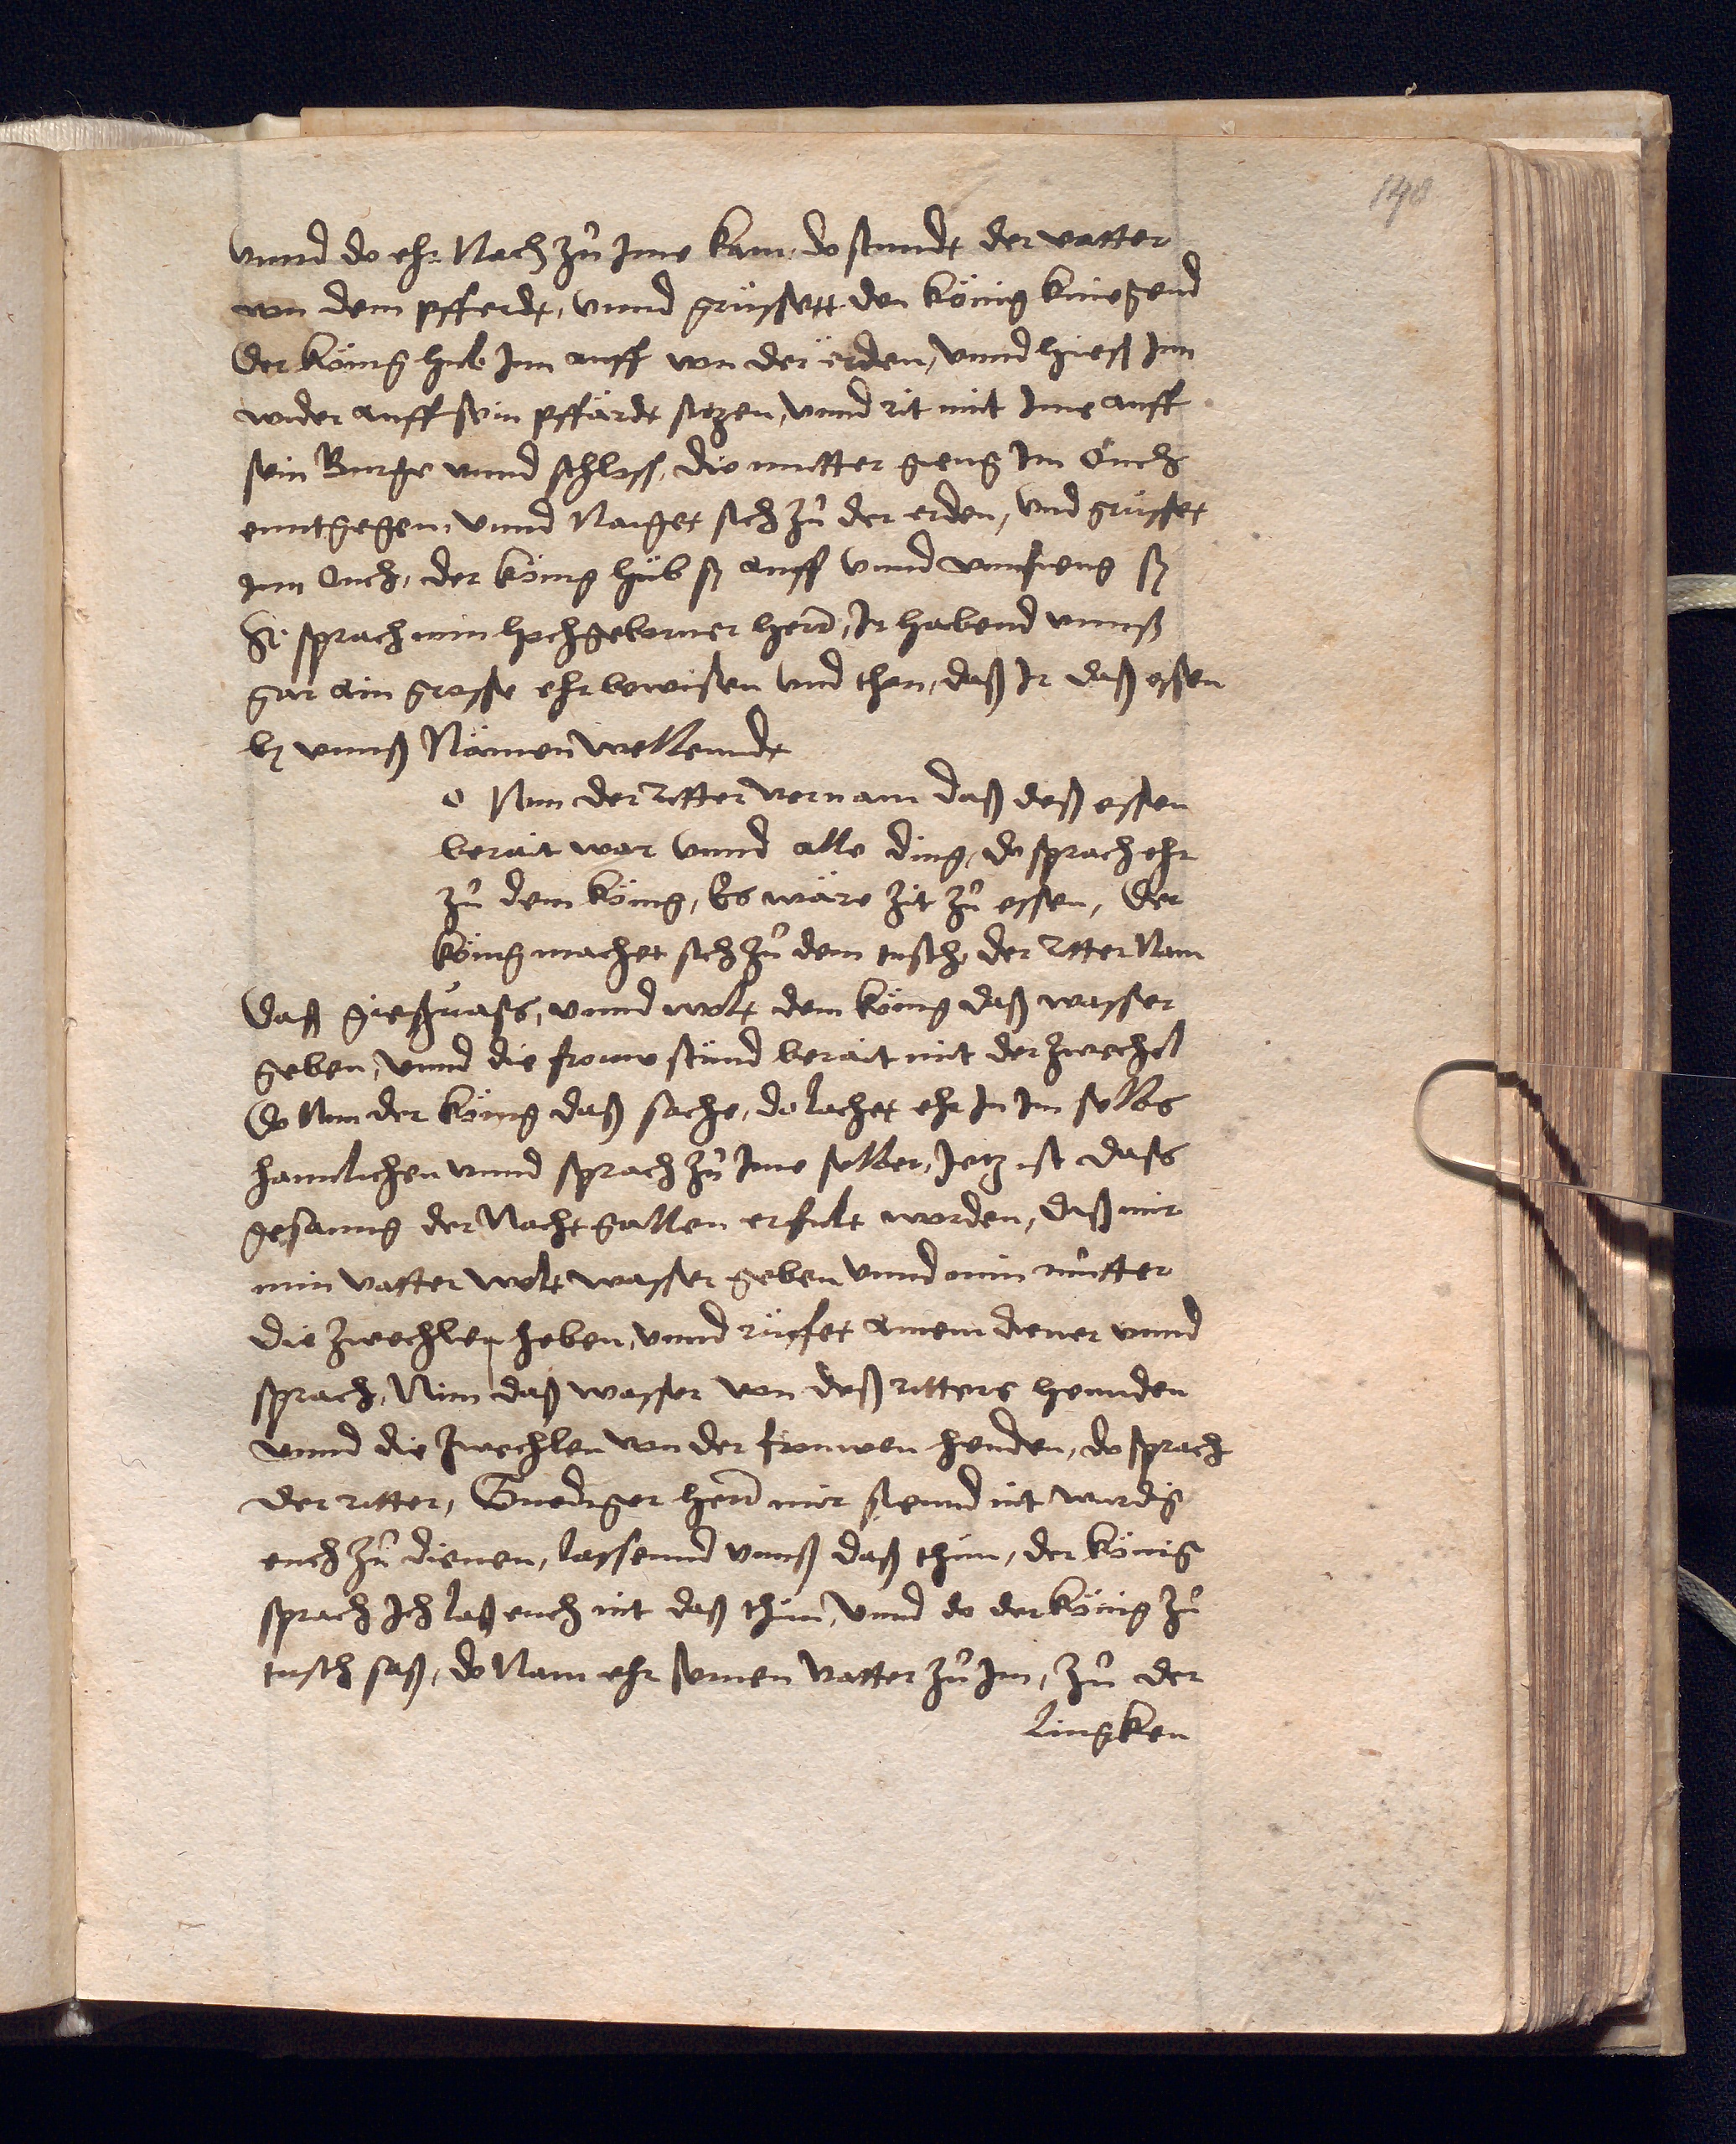 148
vnnd do ehr Nach zů Jme kam, do stundt der vatter
von dem pfferdt, vnnd grüssett den König kniegend
Der König hub Jnn auff von der erden, vnnd hieß Jnn
wider auff sein pffärdt sitzen, vnnd rit mit Jme auff
sein Burge vnnd schloss, die mutter gieng Jm Ouch
enntgegen, vnnd Naiget sich zů der erden, vnd grüsset
Jnn Ouch, der König hüb sy auff vnnd vmfieng sy
Si sprach min hochgeborner herr, Jr habend vnnß
gar ain grosse ehr bewisen vnd than, daß Jr daß essen
by vnnß Nämen wellenndt
o Nun der ritter vernam daß deß essen
berait war vnnd alle ding, do sprach ehr
zů dem König, Es wäre zit zů essen, Der
König machet sich zů dem tisch, der ritter Nam
Daß gießvass, vnnd wolt dem König daß wasser
geben, vnnd die frouw stůnd berait mit der zwechel
Do Nun der König daß sache, do lachet ehr Jn Jm selbs
haimlichen vnnd sprach zů Jme selber, Jetz ist dass
gesanng der Nachtgallen erfült worden, daß mir
min vatter wolt wasser geben vnnd min můtter
die zwechlen heben, vnnd rüeffet ainem diener vnnd
sprach, Nim daß wasser von deß ritters hennden
vnnd die zwechlen von der frouwen henden, do sprach
der ritter, Gnediger herr mir siennd nit wurdig
euch zů dienen, lassennd vnnß daß thun, der König
sprach Jch laß euch nit daß thůn, vnnd do der König zů
tisch saß, do Nam ehr seinen vatter zů Jm, zů der
lingken